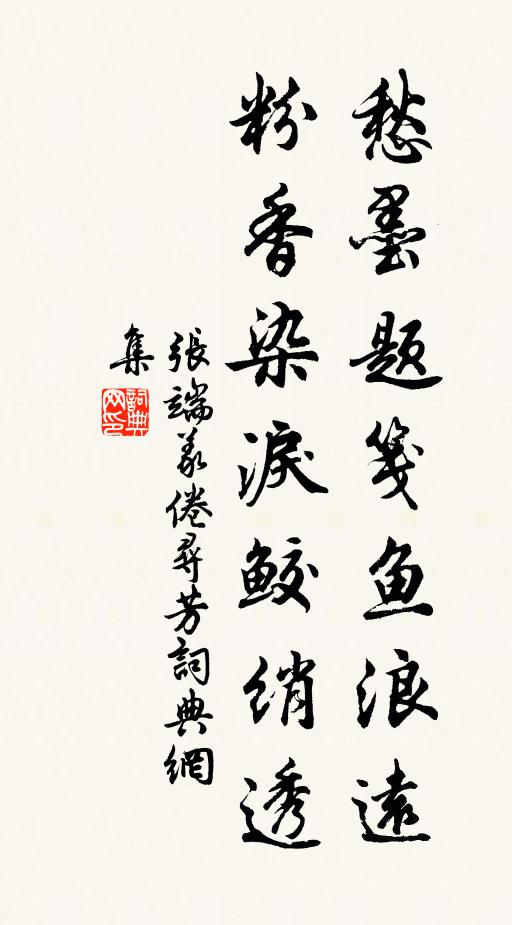 愁墨題箋魚浪遠
粉香染淚鮫綃透
張端義倦尋芳詞典網
集
詞典網印